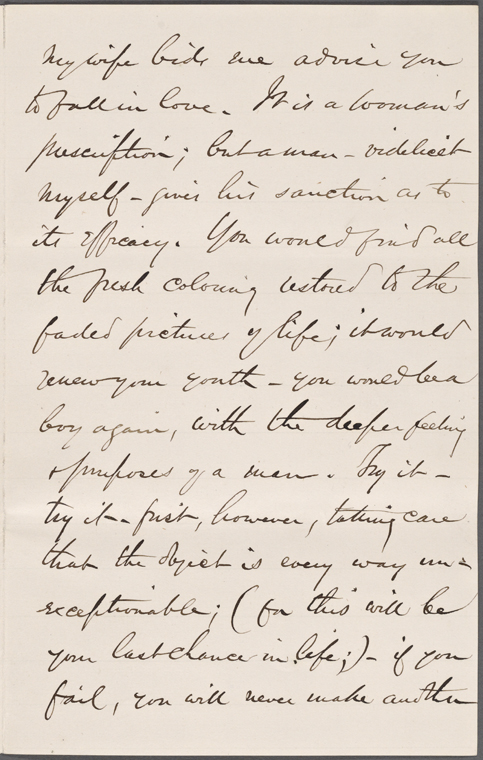 My wife bids me advise you
to fall in love. It is a woman's
prescription; but a man - videlicet
myself - gives his sanction as to
its efficacy. You would find all
the fresh coloring restored to the
faded pictures of life; it would
renew your youth - you would be a
boy again, with the deeper feeling
& purposes of a man. Try it -
try it - first, however, taking care
that the object is every way un=
exceptionable; (for this will be
your last chance in life;) - if you
fail, you will never make another